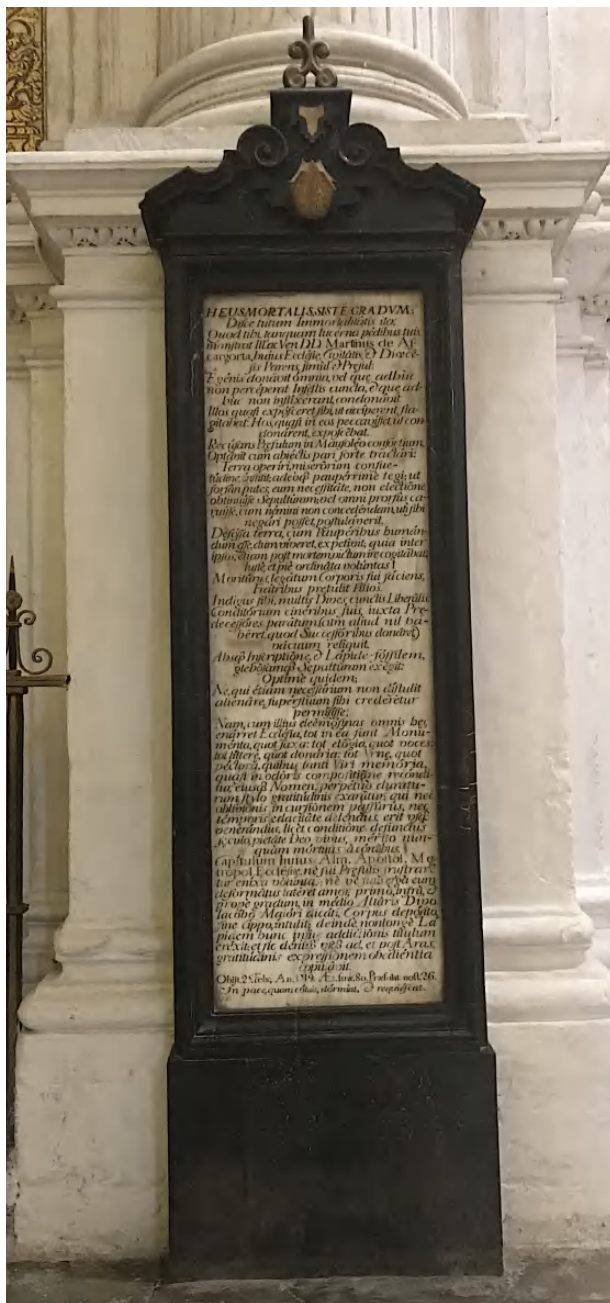 HEUS MORTALIS, SISTE GRADVM:
Disce tutum Immortalitatis iter,
Quod tibi, tanquam lucerna pedibus tuis
monstrat Ill.ac Ven DD. Martinus de As-
cargorta, huius Ecclesie, Civitatis, & Diœce-
sis Parens, simul & Presul.
Egenis donavit omnia, vel que adhuc
non perceperat Infestis cuncta, & que ad-
huc non inflixerant, condonavit
Illos quasi exposceret sibi, ut acciperent, fla-
gitabat. Hos, quasi in eos peccavisset, ut con-
donarent, exposcebat.
Recusans Præsulum in Mausoleo consortium,
Optavit cum abiectis pari sorte tractari:
Terra operiri, miserorum consue-
tudine, institit; adeoq; pauperrime tegi; ut
forsan putes, eum necessitate, non electione
obtinuisse Sepulturam; vel omni prorsus ca-
ruisse, cum nemini non concedendam, ubi sibi
negari posset, postulaverit.
Defossa terra, cum Pauperibus human-
dum esse, dum viveret, expetivit; quia inter
ipsos, etiam post mortem, victum ire cogitabat.
Iuste, et pie ordinata voluntas!
Moriturus, legatum Corporis sui faciens,
Fratribus pretulit Filios.
Indigus sibi, multis Dives, cunctis Liberalis.
Conditorium cineribus suis, iuxta Pre-
decessores paratum (cum aliud nil ha-
beret, quod Successoribus donaret)
vacuum reliquit.
Absq; Inscriptione, & Lapide fossilem,
glebosamq; Sepulturam exegit:
Optime quidem;
Ne, qui etiam necessarium non distulit
alienare, superfluum sibi crederetur
permisisse.
Nam, cum illius eleemosinas omnis hec
enarret Ecclesia, tot in ea sunt Monu-
menta, quot saxa: tot elogia, quot voces:
tot litere, quot donaria: tot Vrne, quot
pectora, quibus tanti Viri memoria,
quasi in odoris compositione recondi-
tur, eiusq; Nomen, perpetuo duratu-
rum, stylo gratitudinis exaratur; qui nec
oblivionis incursionem passurus, nec
temporis edacitate delendus, erit usq;
venerandus, licet conditione defunctus
seculo, pietate Deo vivus, merito nun-
quam mortuus a cordibus.
Capitulum huius Alm. Apostol. Me-
tropol. Ecclesie, ne sui Presulis frustrare-
tur enixa volunta, ne ve erga eum
deformatus lateret amor, primo, infra, &
prope gradum, in medio Altaris Divo
Iacobo Maiori sacati, Corpus deposito,
sine cippo, intulit; deinde, non longe La-
pidem hunc prius addictionis titulum
erexit; et sic demum usq; ad, et post Aras,
gratitudinis expressionem obedientia
copulavit.
Obijt. 25. Feb; An. 1719. Æt. sue. 80. Presulat. nost. 26.
In pace, quam coluit, dormiat, & requiescat.